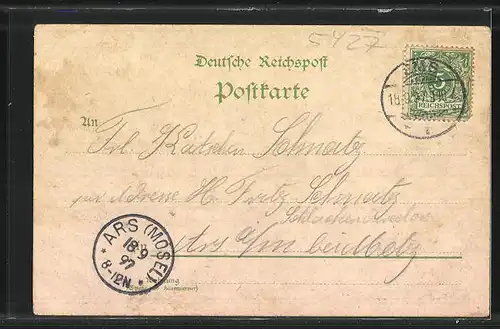 5427
Deutsche Reichspost
Postkarte
5
REICHSPOST
An
Frl. Kätchen Schmatz
per Adresse H. Fritz Schmatz
Ars a/m bei Metz
ARS (MOSEL)
18 9
97
8-12N